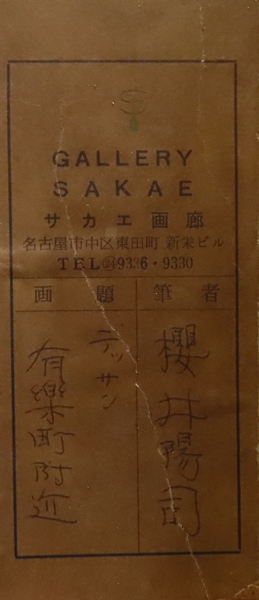 GALLERY
SAKAE
サカエ画廊
名古屋市中区東田町 新栄ビル
TEL(24)9336・9330
画題
筆者
デッサン
有樂町附近
櫻井陽司